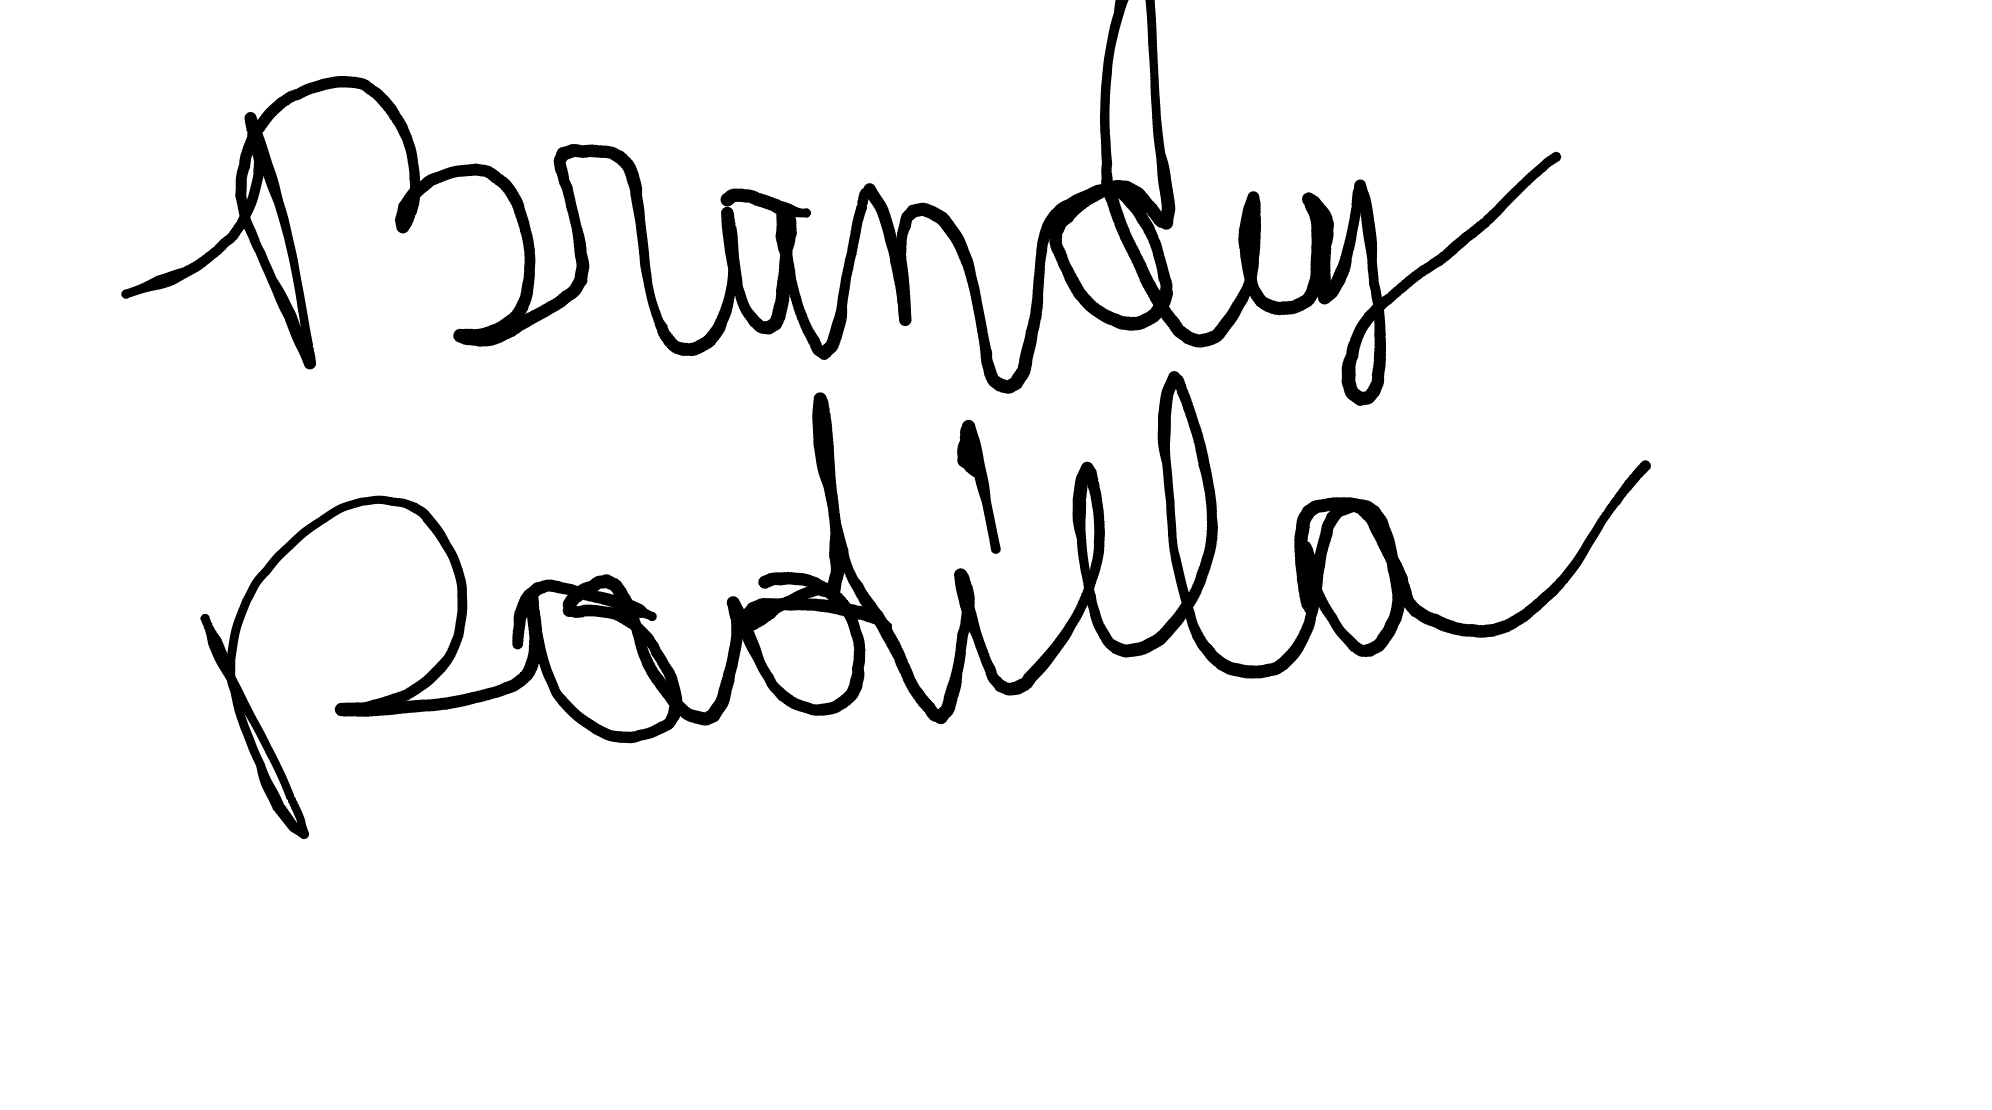 Brandy
Padilla